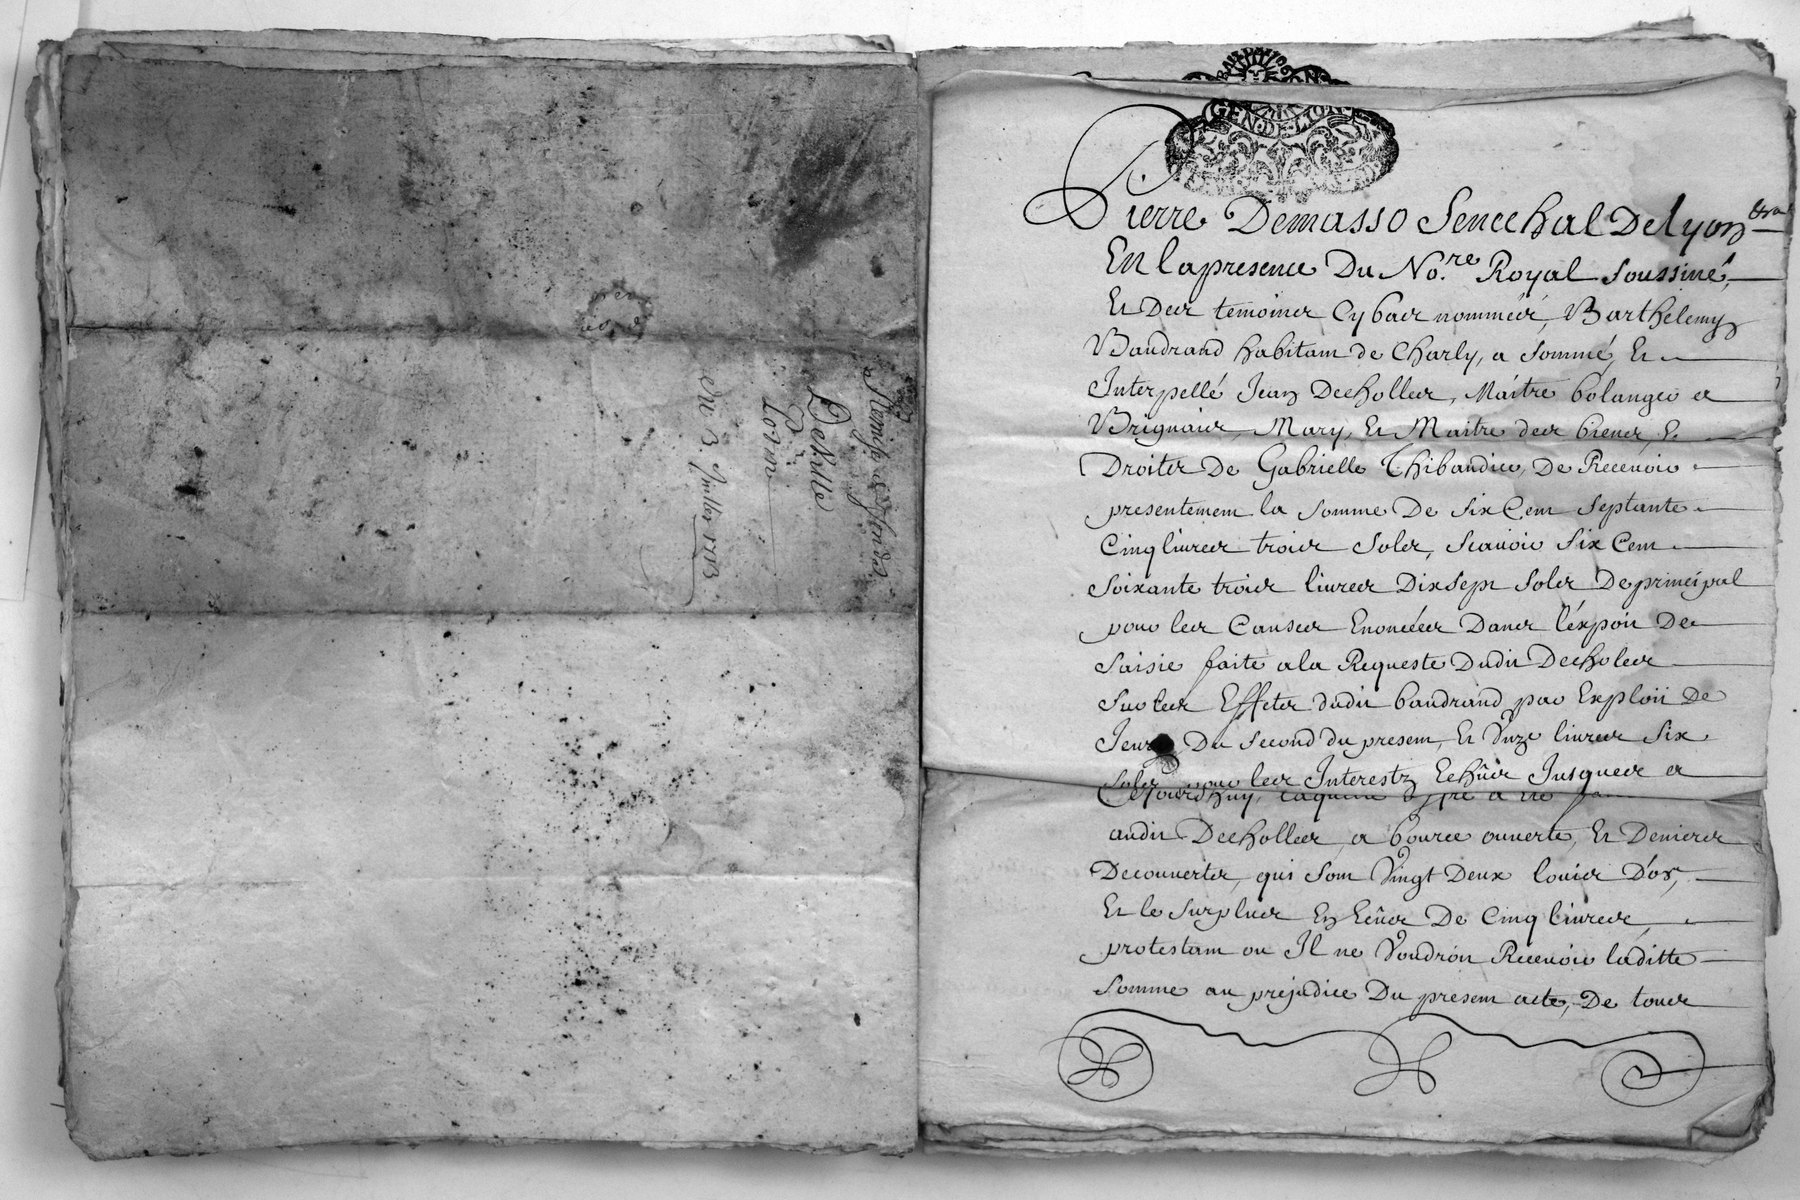 GEN·DE·LYON
Pierre Demasso Senechal De Lyon &ra
En la presence Du No.re Royal soussiné,
Et Des temoines Cybas nommées, Barthelemy
Baudrand habitant de Charly, a sommé, Et
Interpellé Jean Decholles, Maitre bolanger a
Brignais, Mary, Et Maitre des biens, Et
Droites De Gabrielle Thibaudier, De Recevoir
presentement la somme De six Cent septante
Cinq livres trois soles, scavoir six Cent
soixante trois livres Dix sept soles De principal
pour les Causes Enoncées Dans l'expoit De
saisie faite ala Requeste Dudit Decholes
sur les Effetes dudit baudrand par Exploit De
Du second du present, Et Unze livres six
soles pour les Interestz Echûes Jusques a
Cejourdhuy, laquelle a été
audit Decholles, a bource ouverte, Et Denieres
Decouvertes, qui sont Vingt Deux louis D'or,
Et le surplus En Ecûes De Cinq livres,
protestant ou Il ne Voudroit Recevoir laditte
somme au prejudice Du present acte, De toues
Du 3. Juillet 1713